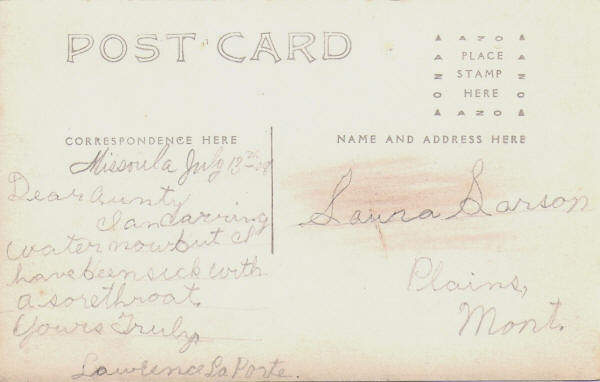 POST CARD
AZO
PLACE
STAMP
HERE
AZO
CORRESPONDENCE HERE
NAME AND ADDRESS HERE
Missoula July 13th
Dear Aunty
I am carring
water now but I
have been sick with
a sore throat.
Yours Truly,
Lawrence La Porte.
Laura Larson
Plains,
Mont.